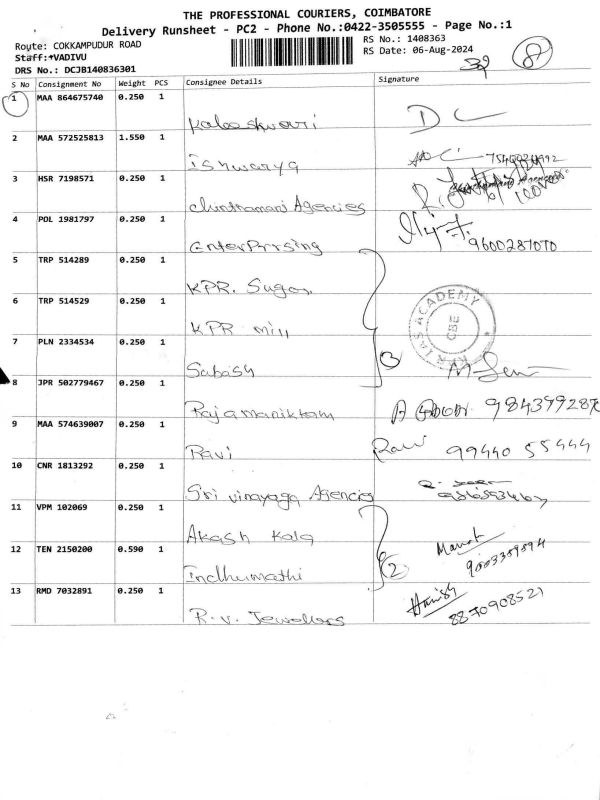 THE PROFESSIONAL COURIERS, COIMBATORE
Delivery Runsheet - PC2 - Phone No.:0422-3505555 - Page No.:1
Route: COKKAMPUDUR ROAD
RS No.: 1408363
Staff:+VADIVU
RS Date: 06-Aug-2024
DRS No.: DCJB140836301
8
S No Consignment No Weight PCS Consignee Details Signature
1 MAA 864675740 0.250 1
Kaleeshwari DC
2 MAA 572525813 1.550 1
Ishwarya
3 HSR 7198571 0.250 1
Chintramani Agencies
4 PDL 1981797 0.250 1
EnterPrrsing 9600287070
5 TRP 514289 0.250 1
KPR. Sugar
6 TRP 514529 0.250 1
KPR mill
KPR IAS ACADEMY
CBE
7 PLN 2334534 0.250 1
Sabash
3
8 JPR 502779467 0.250 1
Rajamaniktam
9 MAA 574639007 0.250 1
Ravi Ravi 99440 55444
10 CNR 1813292 0.250 1
Sri vinayaga Agencies
11 VPM 102069 0.250 1
Akash Kala
12 TEN 2150200 0.590 1
Indhumathi 2
13 RMD 7032891 0.250 1
R.V. Jewellers 8870908521